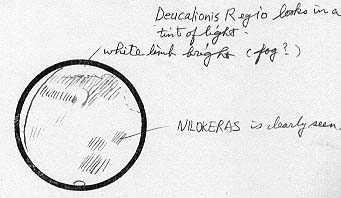 Deucalionis Regio looks in a
tint of light.
white limb bright (fog?)
NILOKERAS is clearly seen.